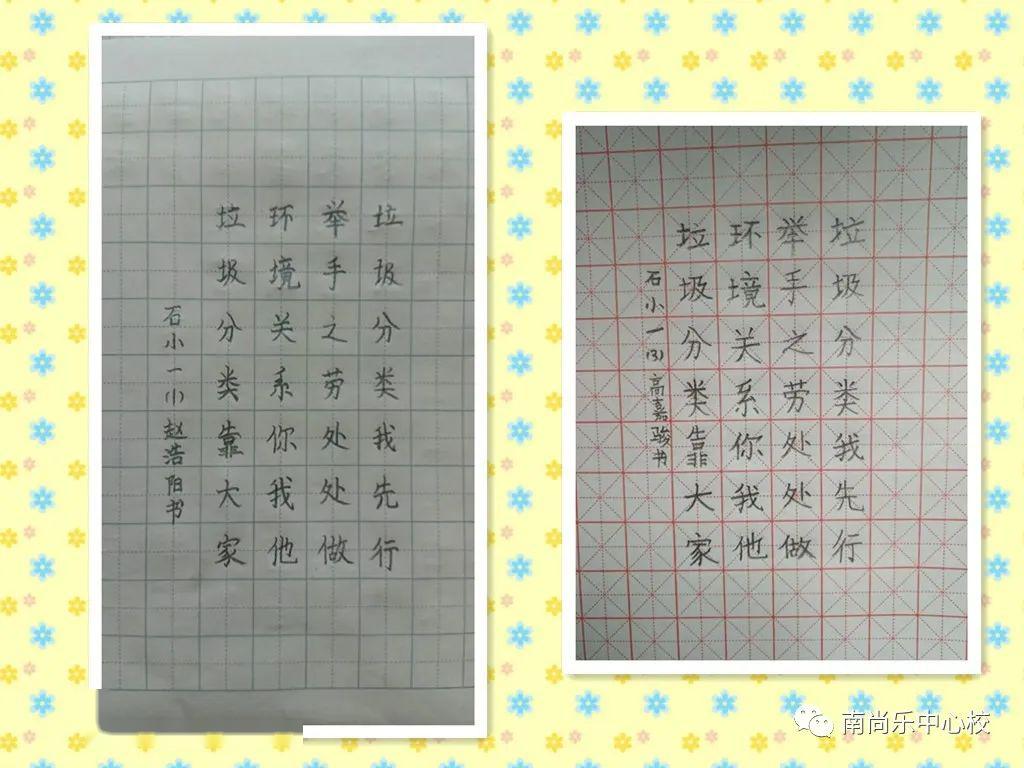 垃圾分类我先行
举手之劳处处做
环境关系你我他
垃圾分类靠大家
石小一(1)赵浩阳书
垃圾分类我先行
举手之劳处处做
环境关系你我他
垃圾分类靠大家
石小一(3)高嘉骏书
南尚乐中心校